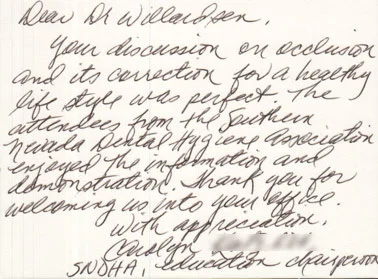 Dear Dr Willardsen,
Your discussion on occlusion
and its correction for a healthy
life style was perfect the
attendees from the Southern
Nevada Dental Hygiene Association
enjoyed the information and
demonstration. Thank you for
welcoming us into your office.
With appreciation,
Carolyn
SNDHA, education chairperson